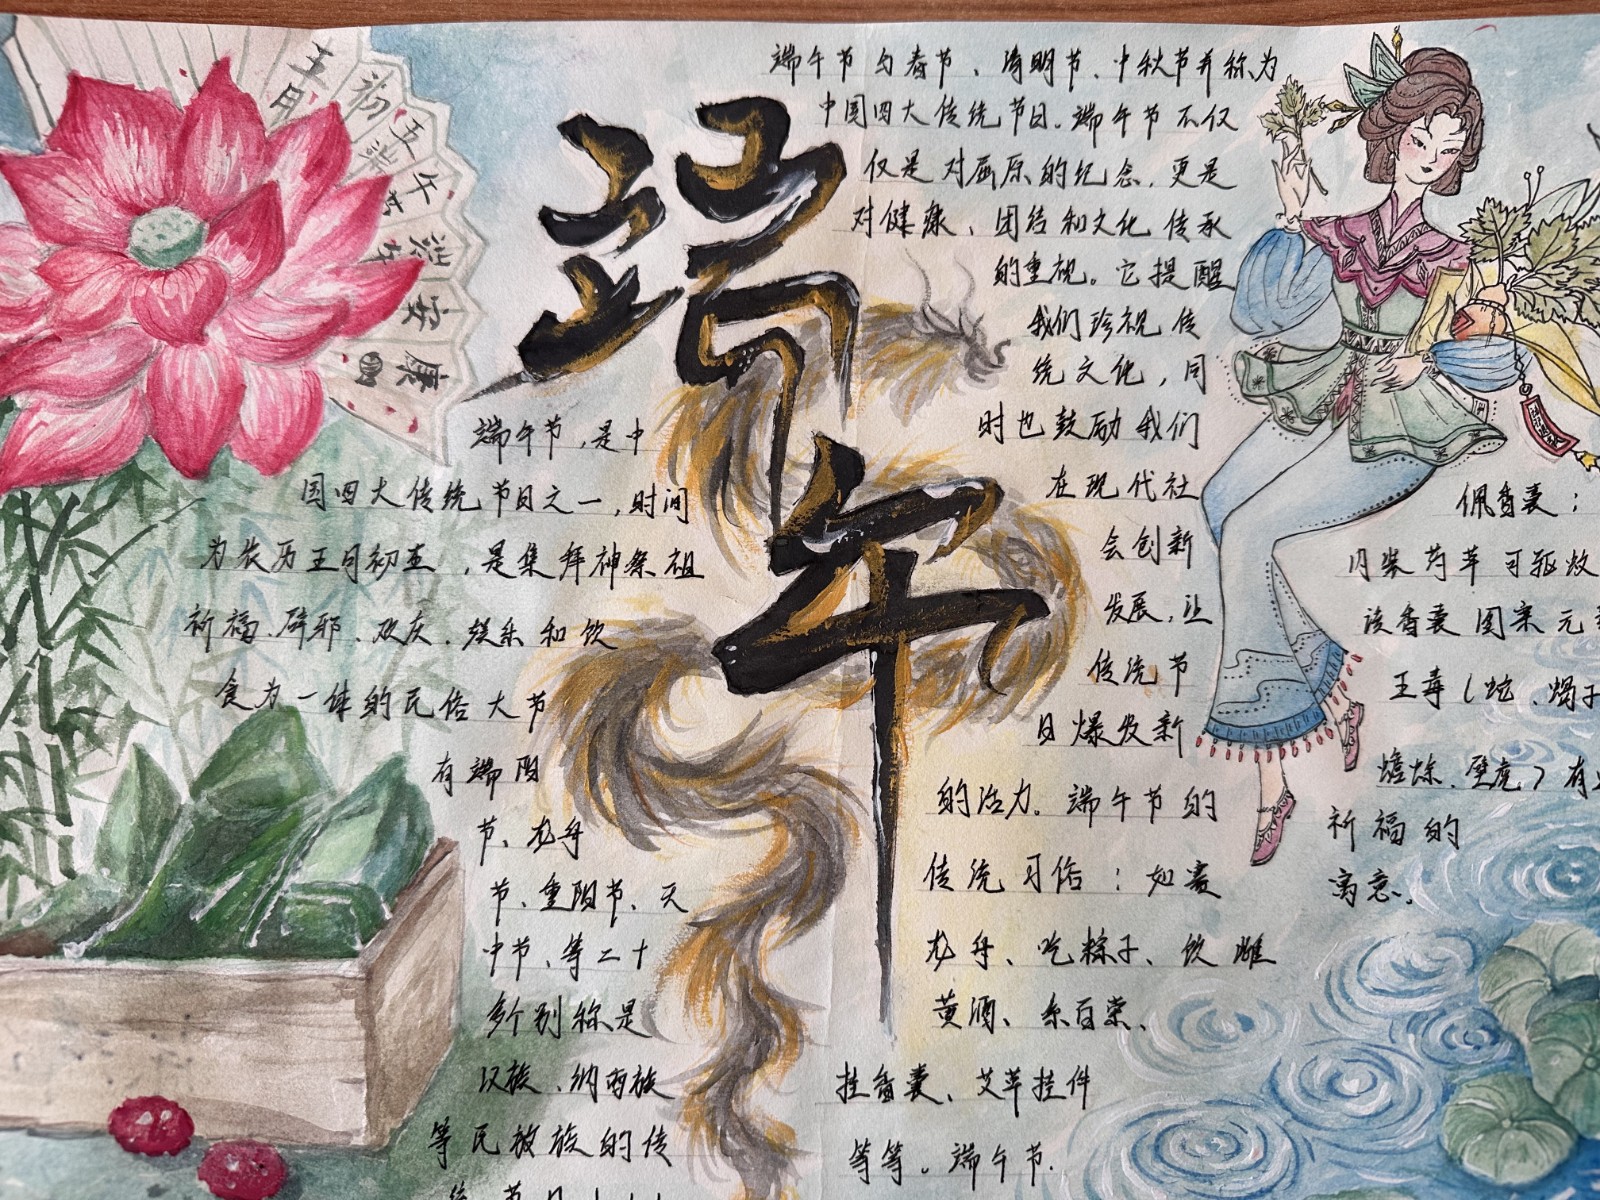 五月
初五
端午
安康
端午
端午节与春节、清明节、中秋节并称为
中国四大传统节日。端午节不仅
仅是对屈原的纪念,更是
对健康、团结和文化传承
的重视。它提醒
我们珍视传
统文化,同
时也鼓励我们
在现代社
会创新
发展,让
传统节
日爆发新
的活力。端午节的
传统习俗:如赛
龙舟、吃粽子、饮雄
黄酒、系百索、
挂香囊、艾草挂件
等等。端午节.
端午节,是中
国四大传统节日之一,时间
为农历五月初五,是集拜神祭祖
祈福、辟邪、欢庆、娱乐和饮
食为一体的民俗大节
有端阳
节、龙舟
节、重阳节、天
中节、等二十
多个别称是
汉族、纳西族
等民放族的传
统节日
佩香囊:
内装药草可驱蚊
该香囊图案元
五毒(蛇、蝎子
蟾蜍、壁虎)有
祈福的
寓意。